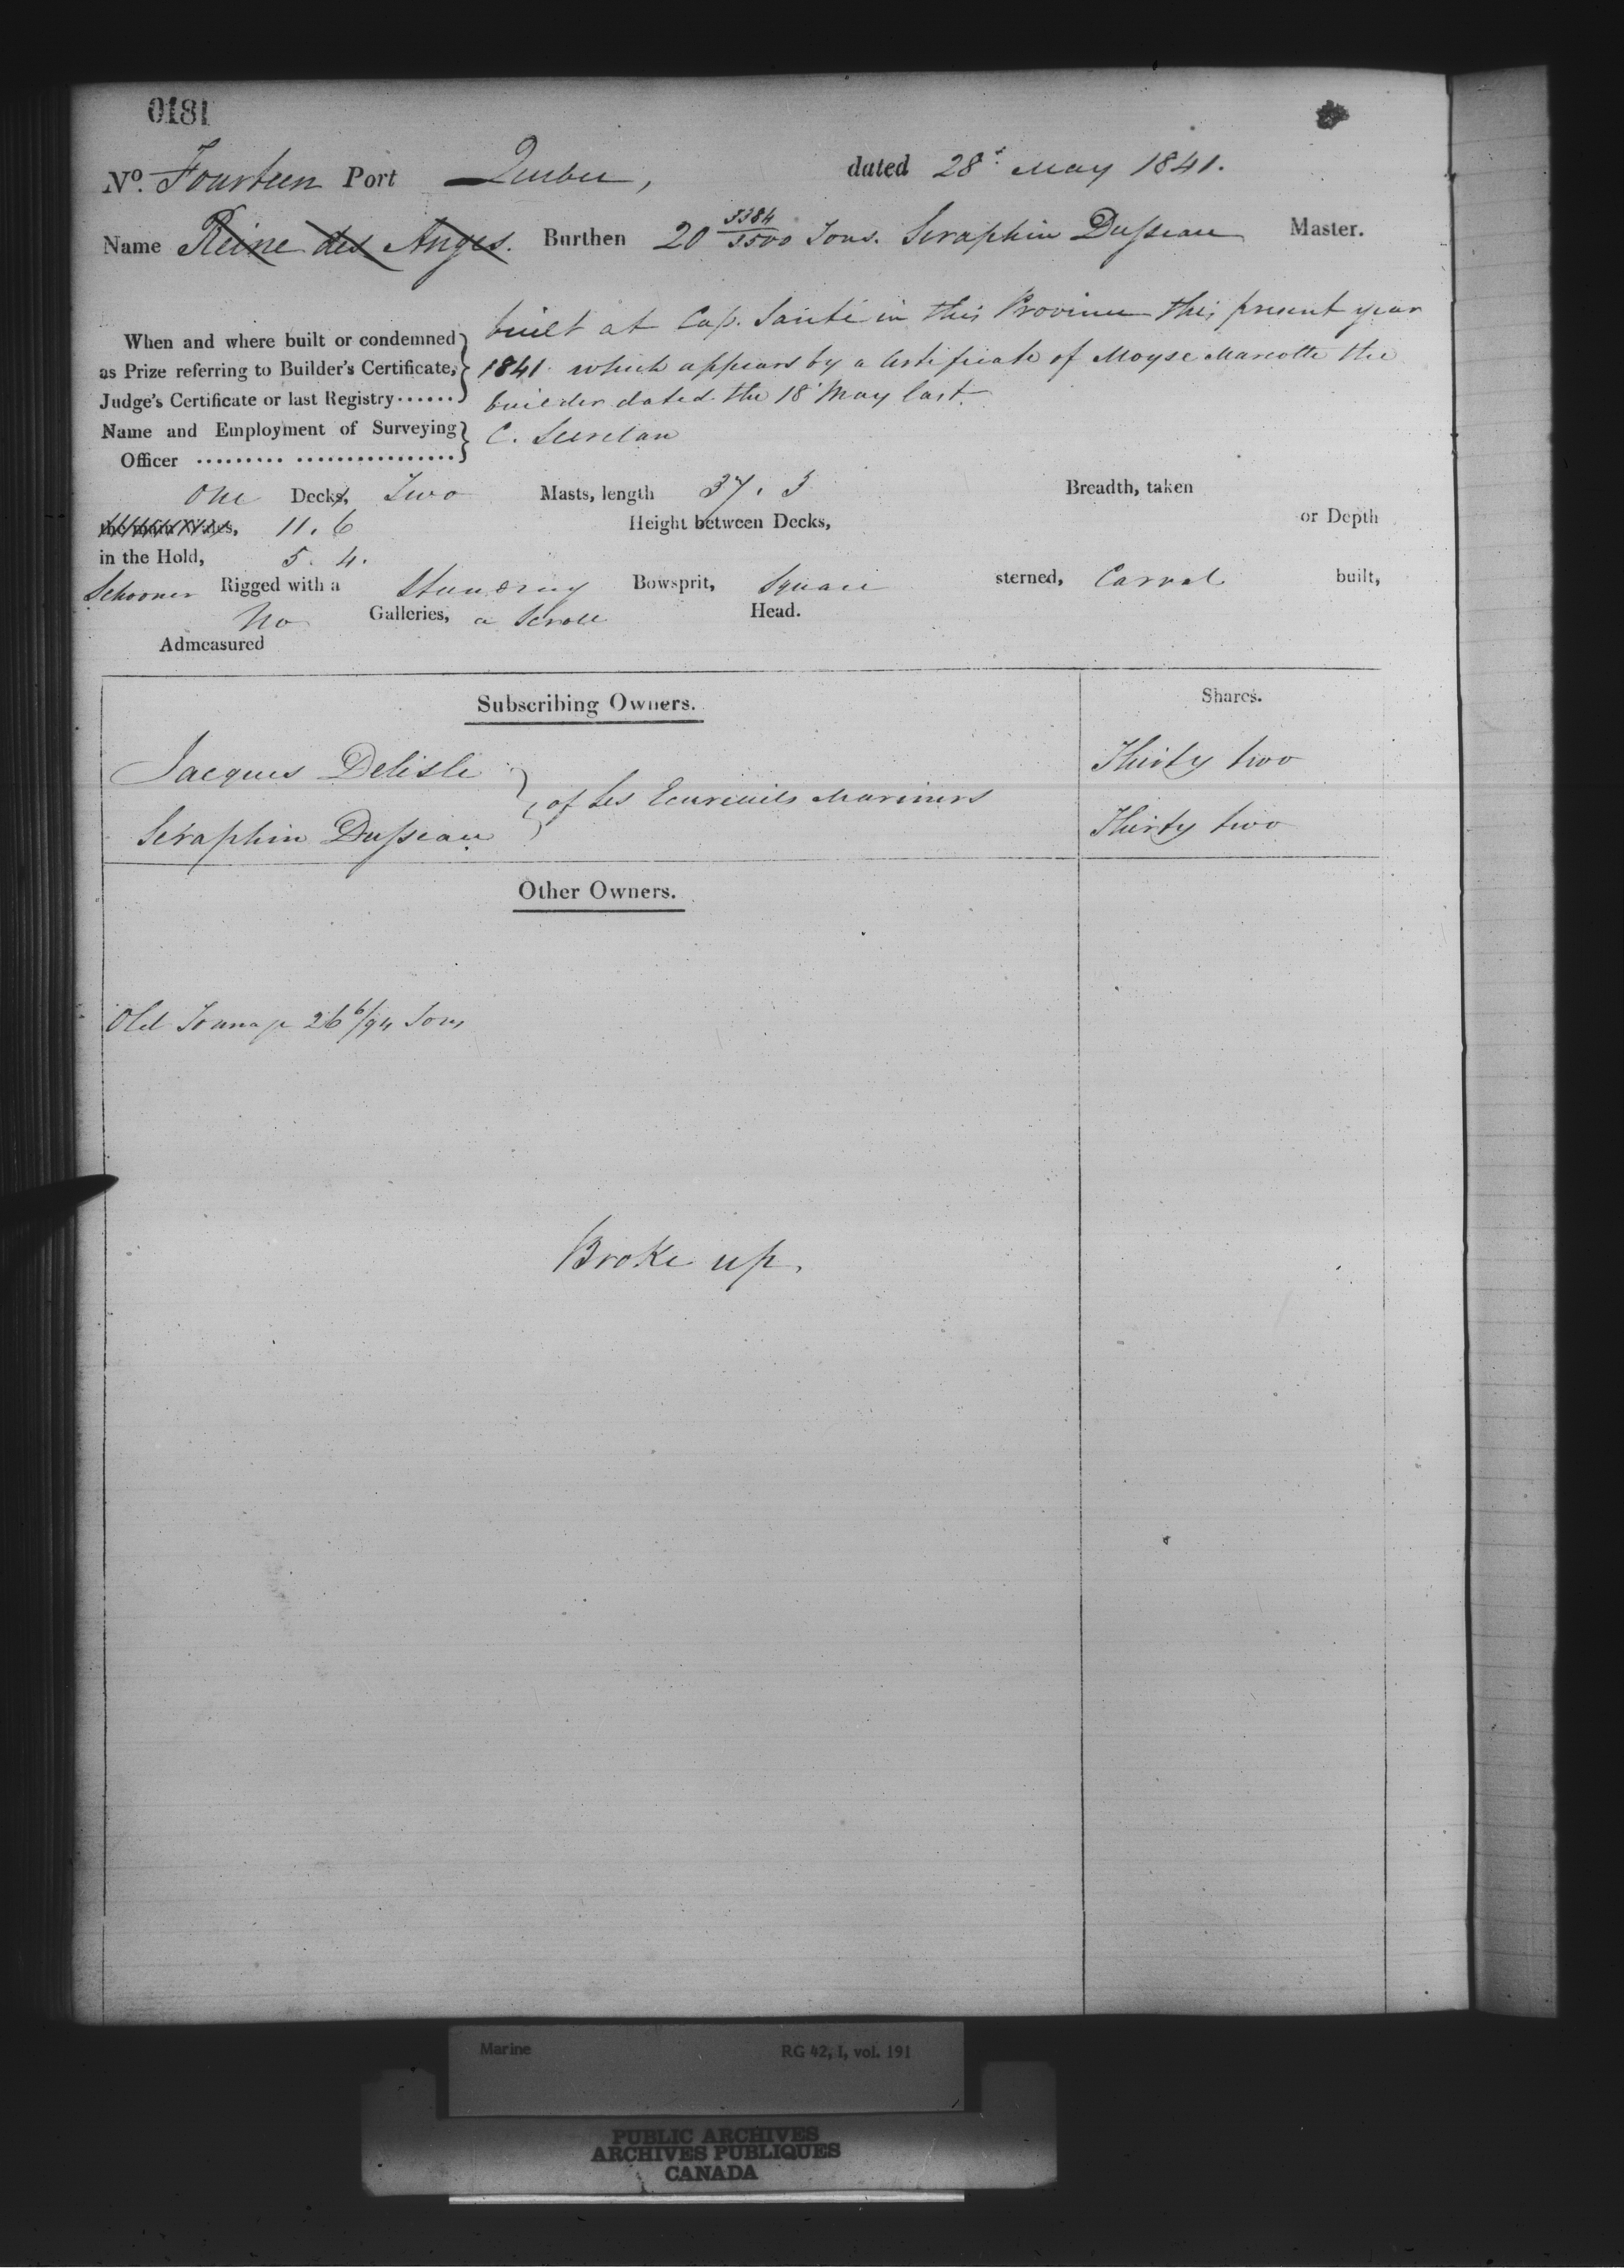 0181
No. Fourteen Port Quebec, dated 28t May 1841.
Name Reine des Anges. Burthen 20 3384/3500 Tons. Seraphin Dusseau Master.
When and where built or condemned as Prize referring to Builder's Certificate, Judge's Certificate or last Registry......
built at Cap. Santé in this Province this present year
1841. which appears by a Certificate of Moyse Marcotte the
builder dated the 18t May last.
Name and Employment of Surveying Officer ......... ................ C.
One Decks, Two Masts, length 37. 3 Breadth, taken
11. 6 Height between Decks, or Depth
in the Hold, 5. 4.
Schooner Rigged with a Standing Bowsprit, Square sterned, Carvel built,
No Galleries, a Scroll Head.
Admeasured
Subscribing Owners. Shares.
Jacques Delisle Thirty two
of Les Ecureuils Mariners
Seraphin Dusseau Thirty two
Other Owners.
Old Tonnage 26 6/94 Tons
Broke up.
Marine RG 42, I, vol. 191
PUBLIC ARCHIVES
ARCHIVES PUBLIQUES
CANADA